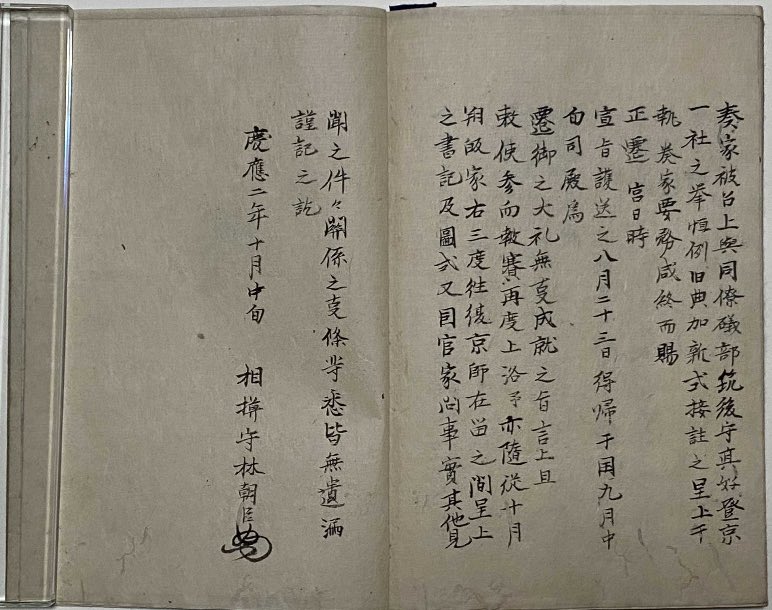 奏家被召上與同僚礒部筑後守真好登京
一社之挙恒例旧典加新式接註之呈上于
執奏家要務咸終而賜
正遷宮日時
宣旨護送之八月二十三日得帰于国九月中
司殿為
遷御之大礼無支成就之旨言上且
敕使参向報賽再度上洛予亦随従十月
朔皈家右三度往復京師在留之間呈上
之書記及圖式又因官家尚事實其他見
聞之件々關係之支條等悉皆無遺漏
謹記之訖
慶應二年十月中旬
相摸守林朝臣